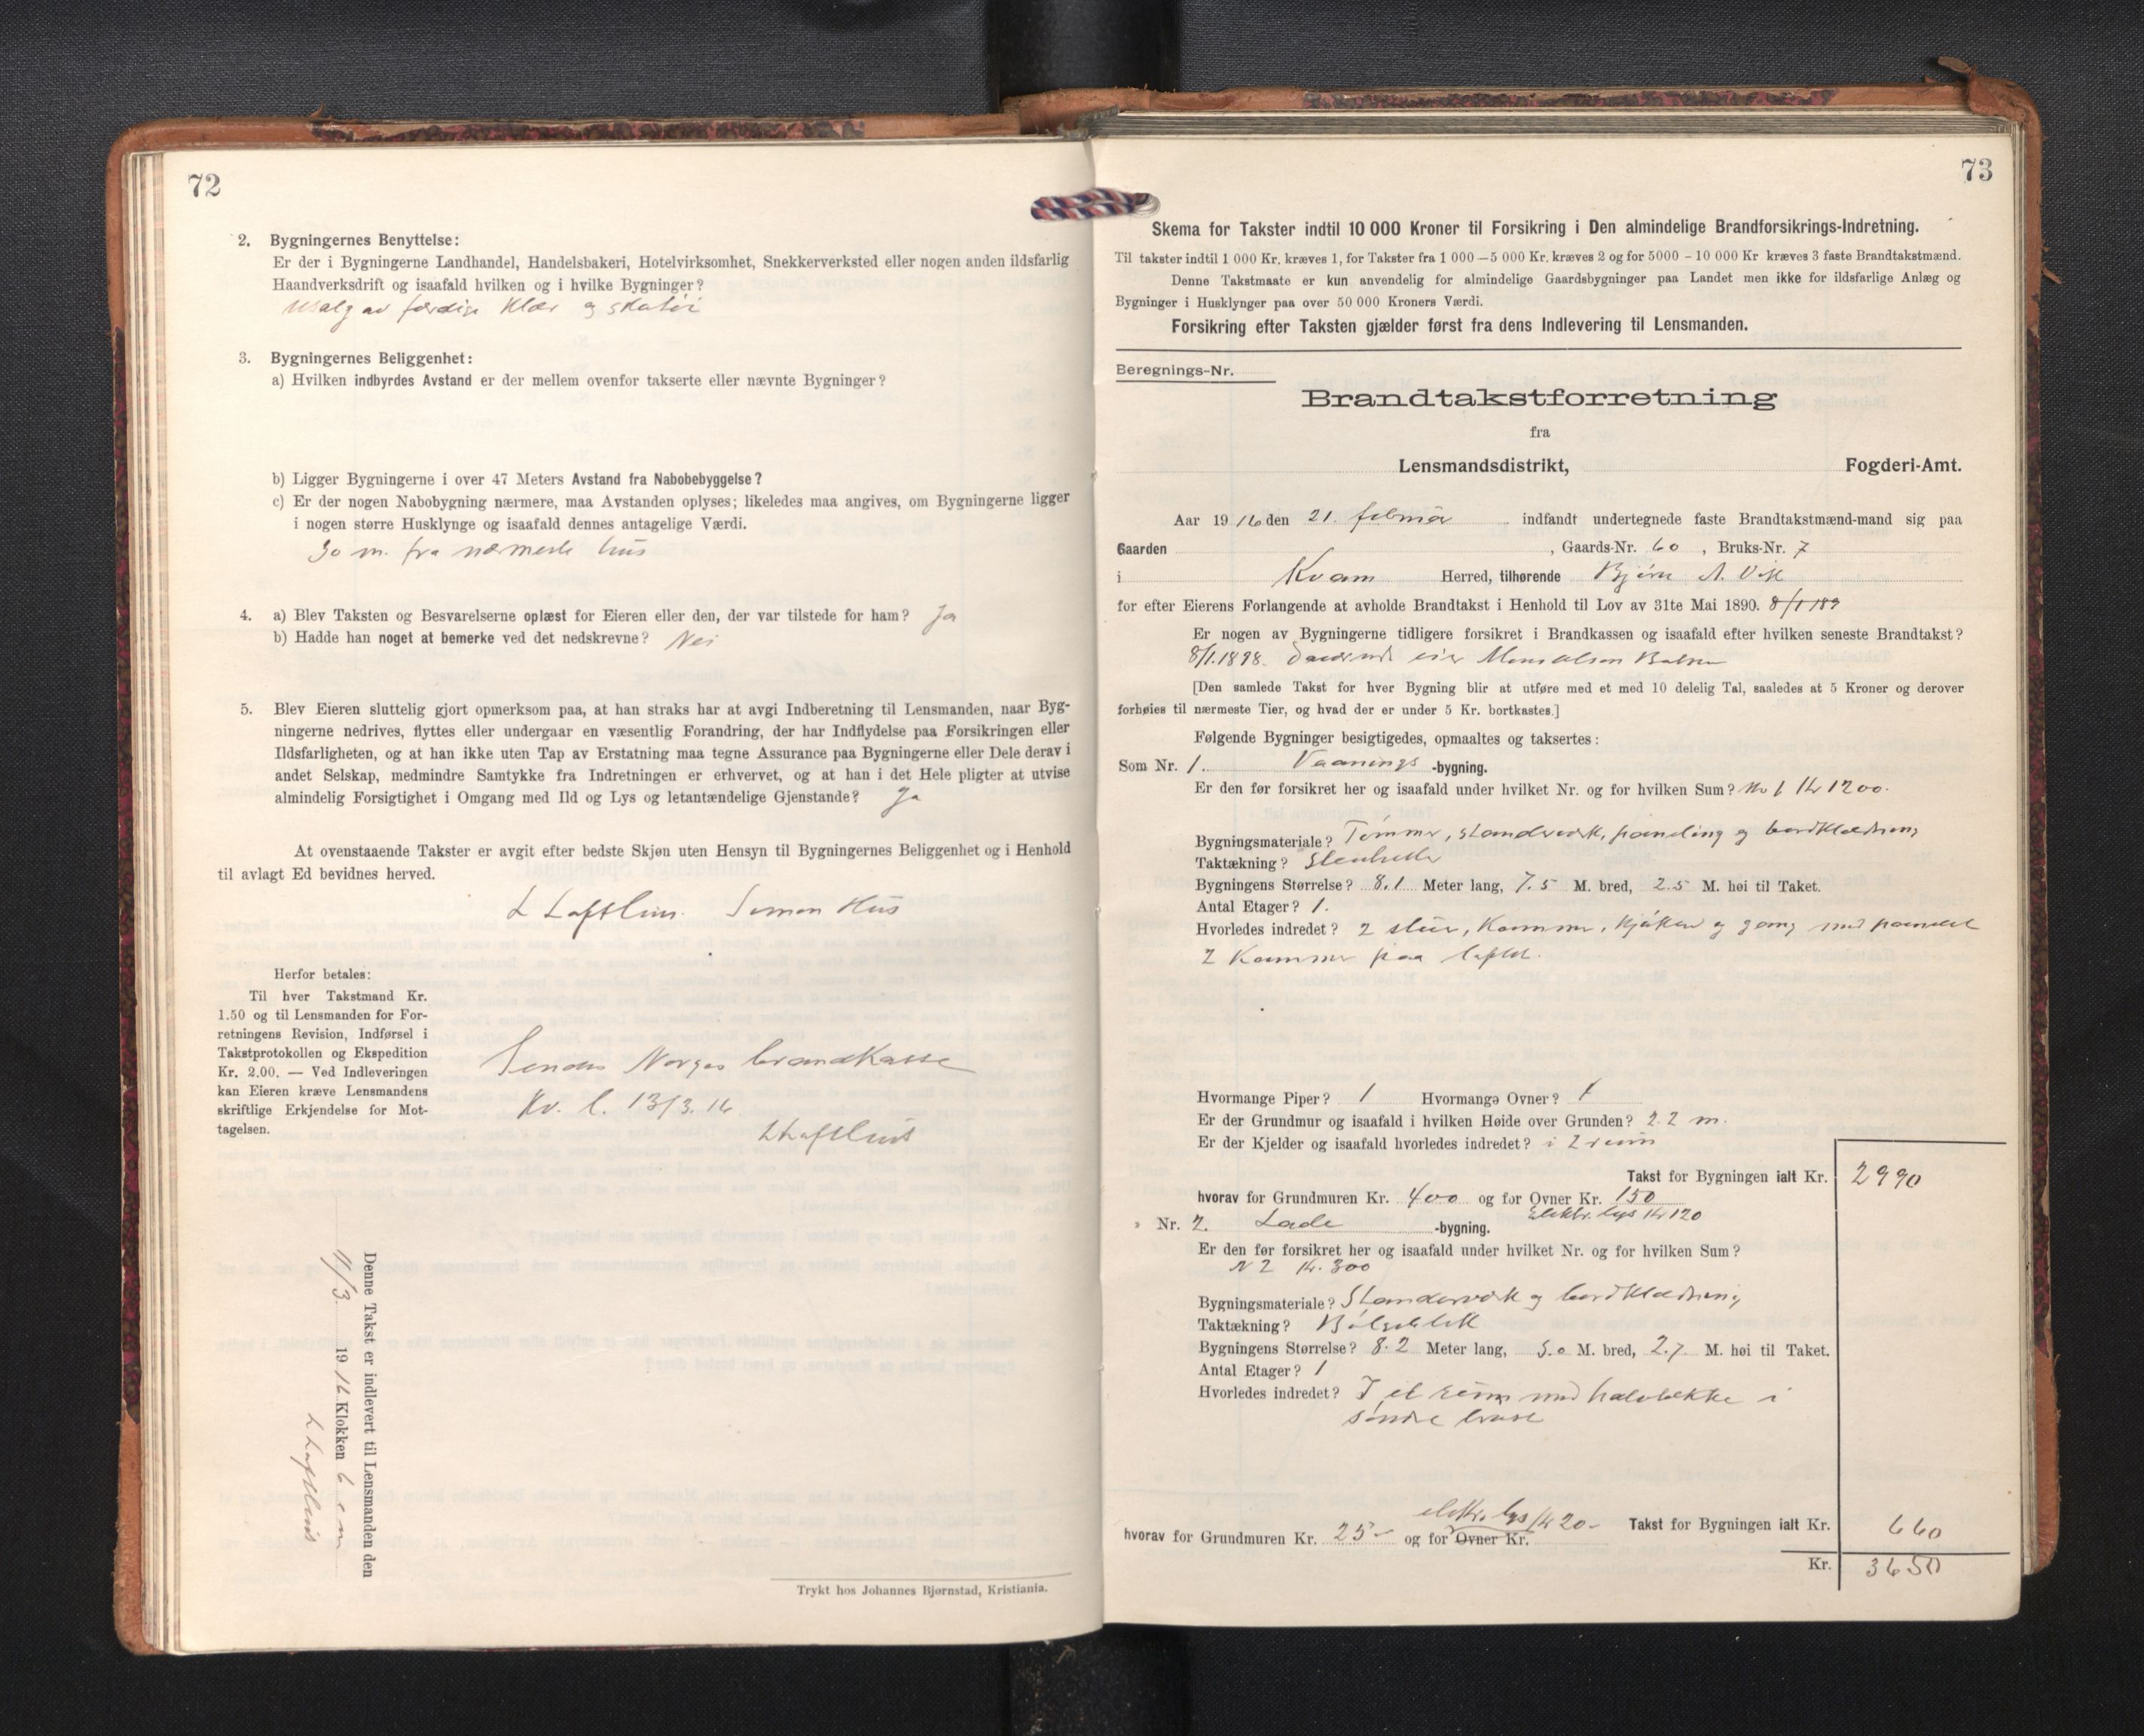 72
2. Bygningernes Benyttelse:
Er der i Bygningerne Landhandel, Handelsbakeri, Hotelvirksomhet, Snekkerverksted eller nogen anden ildsfarlig
Haandverksdrift og isaafald hvilken og i hvilke Bygninger?
Utsalg av færdige klær og skotøi
3. Bygningernes Beliggenhet:
a) Hvilken indbyrdes Avstand er der mellem ovenfor takserte eller nævnte Bygninger?
b) Ligger Bygningerne i over 47 Meters Avstand fra Nabobebyggelse?
c) Er der nogen Nabobygning nærmere, maa Avstanden oplyses; likeledes maa angives, om Bygningerne ligger
i nogen større Husklynge og isaafald dennes antagelige Værdi.
30 m. fra nærmeste hus
4. a) Blev Taksten og Besvarelserne oplæst for Eieren eller den, der var tilstede for ham? Ja
b) Hadde han noget at bemerke ved det nedskrevne? Nei
5. Blev Eieren sluttelig gjort opmerksom paa, at han straks har at avgi Indberetning til Lensmanden, naar Byg-
ningerne nedrives, flyttes eller undergaar en væsentlig Forandring, der har Indflydelse paa Forsikringen eller
Ildsfarligheten, og at han ikke uten Tap av Erstatning maa tegne Assurance paa Bygningerne eller Dele derav i
andet Selskap, medmindre Samtykke fra Indretningen er erhvervet, og at han i det Hele pligter at utvise
almindelig Forsigtighet i Omgang med Ild og Lys og letantændelige Gjenstande? Ja
At ovenstaaende Takster er avgit efter bedste Skjøn uten Hensyn til Bygningernes Beliggenhet og i Henhold
til avlagt Ed bevidnes herved.
L Lofthus. Simon Hus
Herfor betales:
Til hver Takstmand Kr.
1.50 og til Lensmanden for For-
retningens Revision, Indførsel i
Takstprotokollen og Ekspedition
Kr. 2.00. — Ved Indleveringen
kan Eieren kræve Lensmandens
skriftlige Erkjendelse for Mot-
tagelsen.
Sendes Norges brandkasse
Kv. l. 13/3. 16
L Lofthus
Denne Takst er indlevert til Lensmanden den
11/3. 1916. Klokken 6 em
L Lofthus
Trykt hos Johannes Bjørnstad, Kristiania.
73
Skema for Takster indtil 10 000 Kroner til Forsikring i Den almindelige Brandforsikrings-Indretning.
Til takster indtil 1 000 Kr. kræves 1, for Takster fra 1 000 — 5 000 Kr. kræves 2 og for 5000 – 10 000 Kr kræves 3 faste Brandtakstmænd.
Denne Takstmaate er kun anvendelig for almindelige Gaardsbygninger paa Landet men ikke for ildsfarlige Anlæg og
Bygninger i Husklynger paa over 50 000 Kroners Værdi.
Forsikring efter Taksten gjælder først fra dens Indlevering til Lensmanden.
Beregnings-Nr.
Brandtakstforretning
fra
Lensmandsdistrikt, Fogderi-Amt.
Aar 1916 den 21. februar indfandt undertegnede faste Brandtakstmænd-mand sig paa
Gaarden , Gaards-Nr. 60 , Bruks-Nr. 7
i Kvam Herred, tilhørende Bjørn A. Vik
for efter Eierens Forlangende at avholde Brandtakst i Henhold til Lov av 31te Mai 1890. 8/1 189
Er nogen av Bygningerne tidligere forsikret i Brandkassen og isaafald efter hvilken seneste Brandtakst?
8/1.1898. Daværende eier Mons Olsen
[Den samlede Takst for hver Bygning blir at utføre med et med 10 delelig Tal, saaledes at 5 Kroner og derover
forhøies til nærmeste Tier, og hvad der er under 5 Kr. bortkastes.]
Følgende Bygninger besigtigedes, opmaaltes og taksertes:
Som Nr. 1. Vaanings -bygning.
Er den før forsikret her og isaafald under hvilket Nr. og for hvilken Sum? No 1 Kr 1200.
Bygningsmateriale? Tømmer, standverk, paneling og bordklædning
Taktækning? Stenheller
Bygningens Størrelse? 8.1 Meter lang, 7.5 M. bred, 2.5 M. høi til Taket.
Antal Etager? 1.
Hvorledes indredet? 2 stuer, Kammer, Kjøkken og gang med panelet
2 Kammer paa loftet.
Hvormange Piper? 1 Hvormange Ovner?
Er der Grundmur og isaafald i hvilken Høide over Grunden? 2.2 m.
Er der Kjelder og isaafald hvorledes indredet? i 2 rum
Takst for Bygningen ialt Kr. 2990
hvorav for Grundmuren Kr. 400 og for Ovner Kr. 150
Elektr. lys Kr 120
» Nr. 2. Lade -bygning.
Er den før forsikret her og isaafald under hvilket Nr. og for hvilken Sum?
N 2 Kr. 300
Bygningsmateriale? Standerverk og bordklædning
Taktækning? Bølgeblik
Bygningens Størrelse? 8.2 Meter lang, 5.0 M. bred, 2.7 M. høi til Taket.
Antal Etager? 1
Hvorledes indredet? I et rum med halvtække i
søndre
elektr. lys Kr 20-
hvorav for Grundmuren Kr. 25- og for Ovner Kr. Takst for Bygningen ialt Kr. 660
Kr. 3650